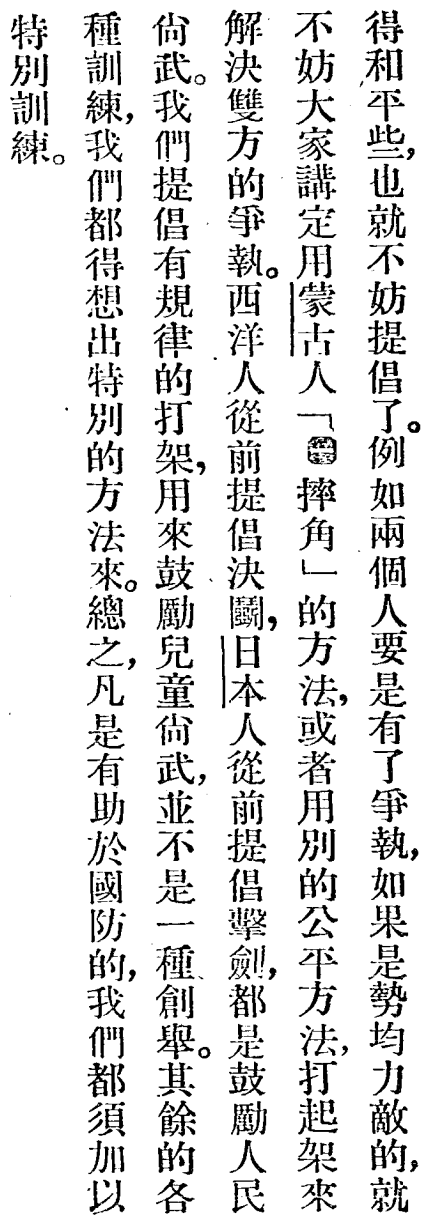 得和平些,也就不妨提倡了。例如兩個人要是有了爭執,如果是勢均力敵的,就
不妨大家講定用蒙古人「摔角」的方法,或者用別的公平方法,打起架來
解決雙方的爭執。西洋人從前提倡決鬭,日本人從前提倡擊劍,都是鼓勵人民
尙武。我們提倡有規律的打架,用來鼓勵兒童尙武,並不是一種創舉。其餘的各
種訓練,我們都得想出特別的方法來。總之,凡是有助於國防的,我們都須加以
特別訓練。